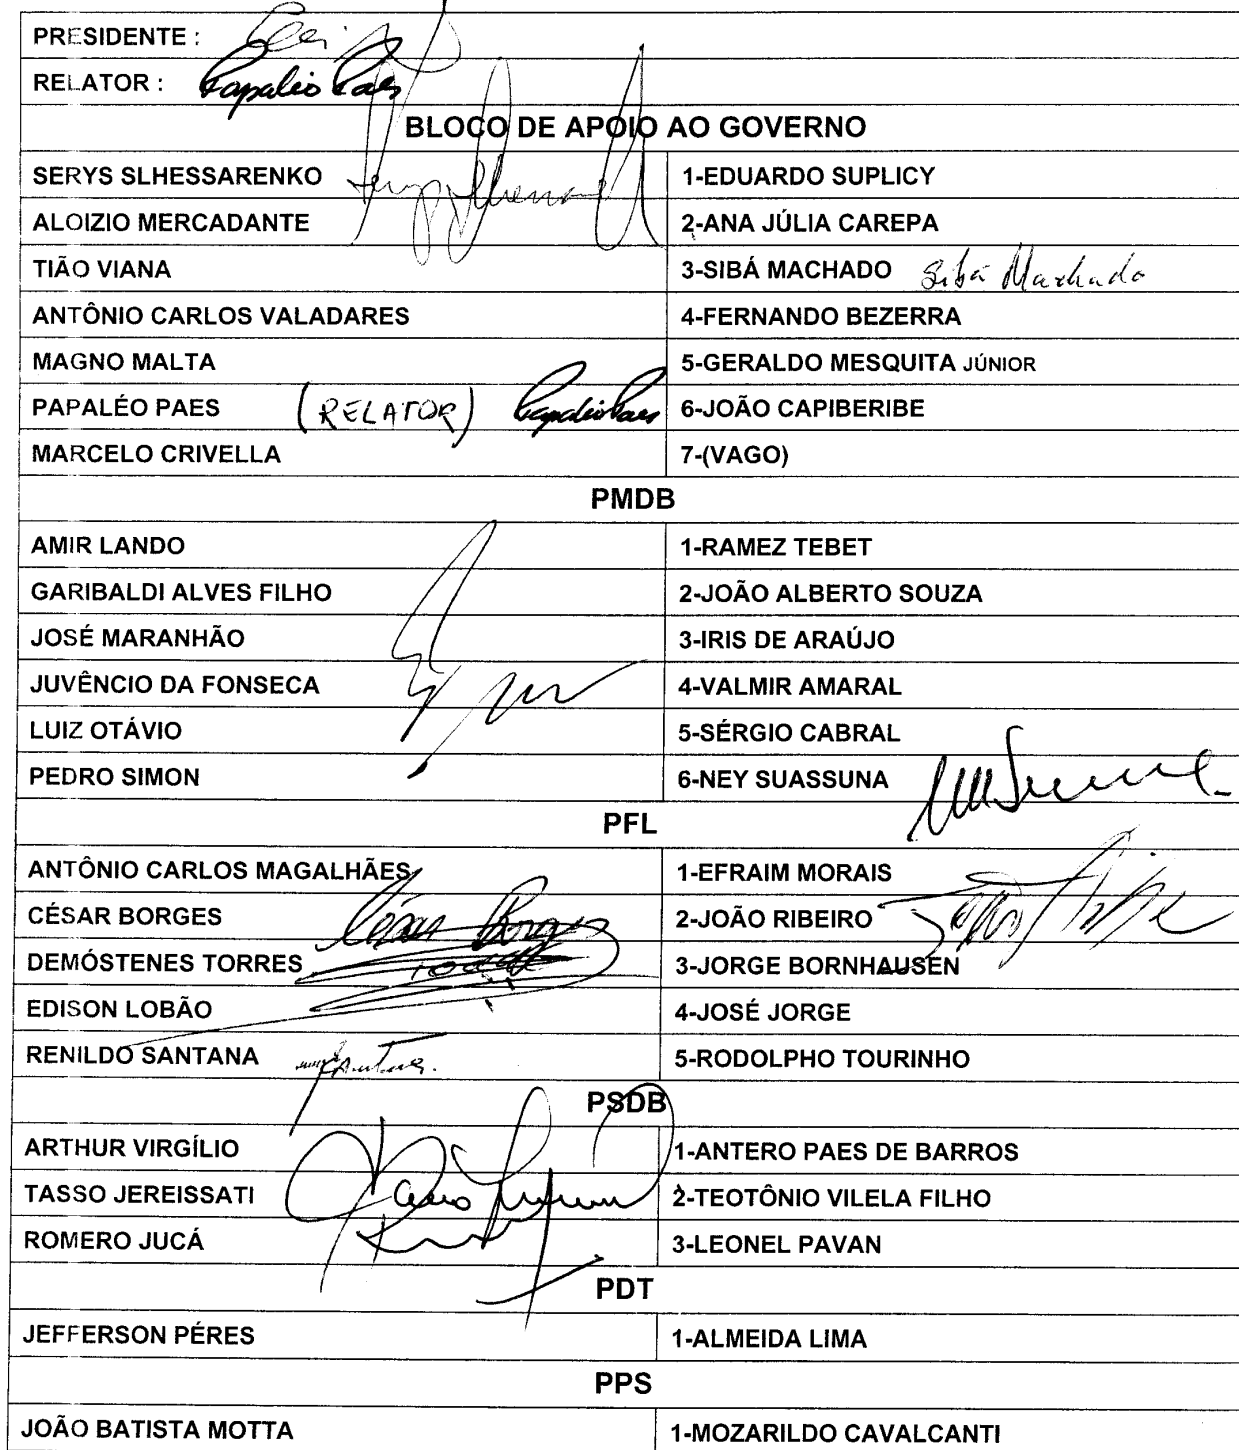 PRESIDENTE :
RELATOR : Papaléo Paes
BLOCO DE APOIO AO GOVERNO
SERYS SLHESSARENKO 1-EDUARDO SUPLICY
ALOIZIO MERCADANTE 2-ANA JÚLIA CAREPA
TIÃO VIANA 3-SIBÁ MACHADO Sibá Machado
ANTÔNIO CARLOS VALADARES 4-FERNANDO BEZERRA
MAGNO MALTA 5-GERALDO MESQUITA JÚNIOR
PAPALÉO PAES (RELATOR) Papaléo Paes 6-JOÃO CAPIBERIBE
MARCELO CRIVELLA 7-(VAGO)
PMDB
AMIR LANDO 1-RAMEZ TEBET
GARIBALDI ALVES FILHO 2-JOÃO ALBERTO SOUZA
JOSÉ MARANHÃO 3-IRIS DE ARAÚJO
JUVÊNCIO DA FONSECA 4-VALMIR AMARAL
LUIZ OTÁVIO 5-SÉRGIO CABRAL
PEDRO SIMON 6-NEY SUASSUNA
PFL
ANTÔNIO CARLOS MAGALHÃES 1-EFRAIM MORAIS
CÉSAR BORGES César Borges 2-JOÃO RIBEIRO
DEMÓSTENES TORRES 3-JORGE BORNHAUSEN
EDISON LOBÃO 4-JOSÉ JORGE
RENILDO SANTANA 5-RODOLPHO TOURINHO
PSDB
ARTHUR VIRGÍLIO 1-ANTERO PAES DE BARROS
TASSO JEREISSATI 2-TEOTÔNIO VILELA FILHO
ROMERO JUCÁ 3-LEONEL PAVAN
PDT
JEFFERSON PÉRES 1-ALMEIDA LIMA
PPS
JOÃO BATISTA MOTTA 1-MOZARILDO CAVALCANTI